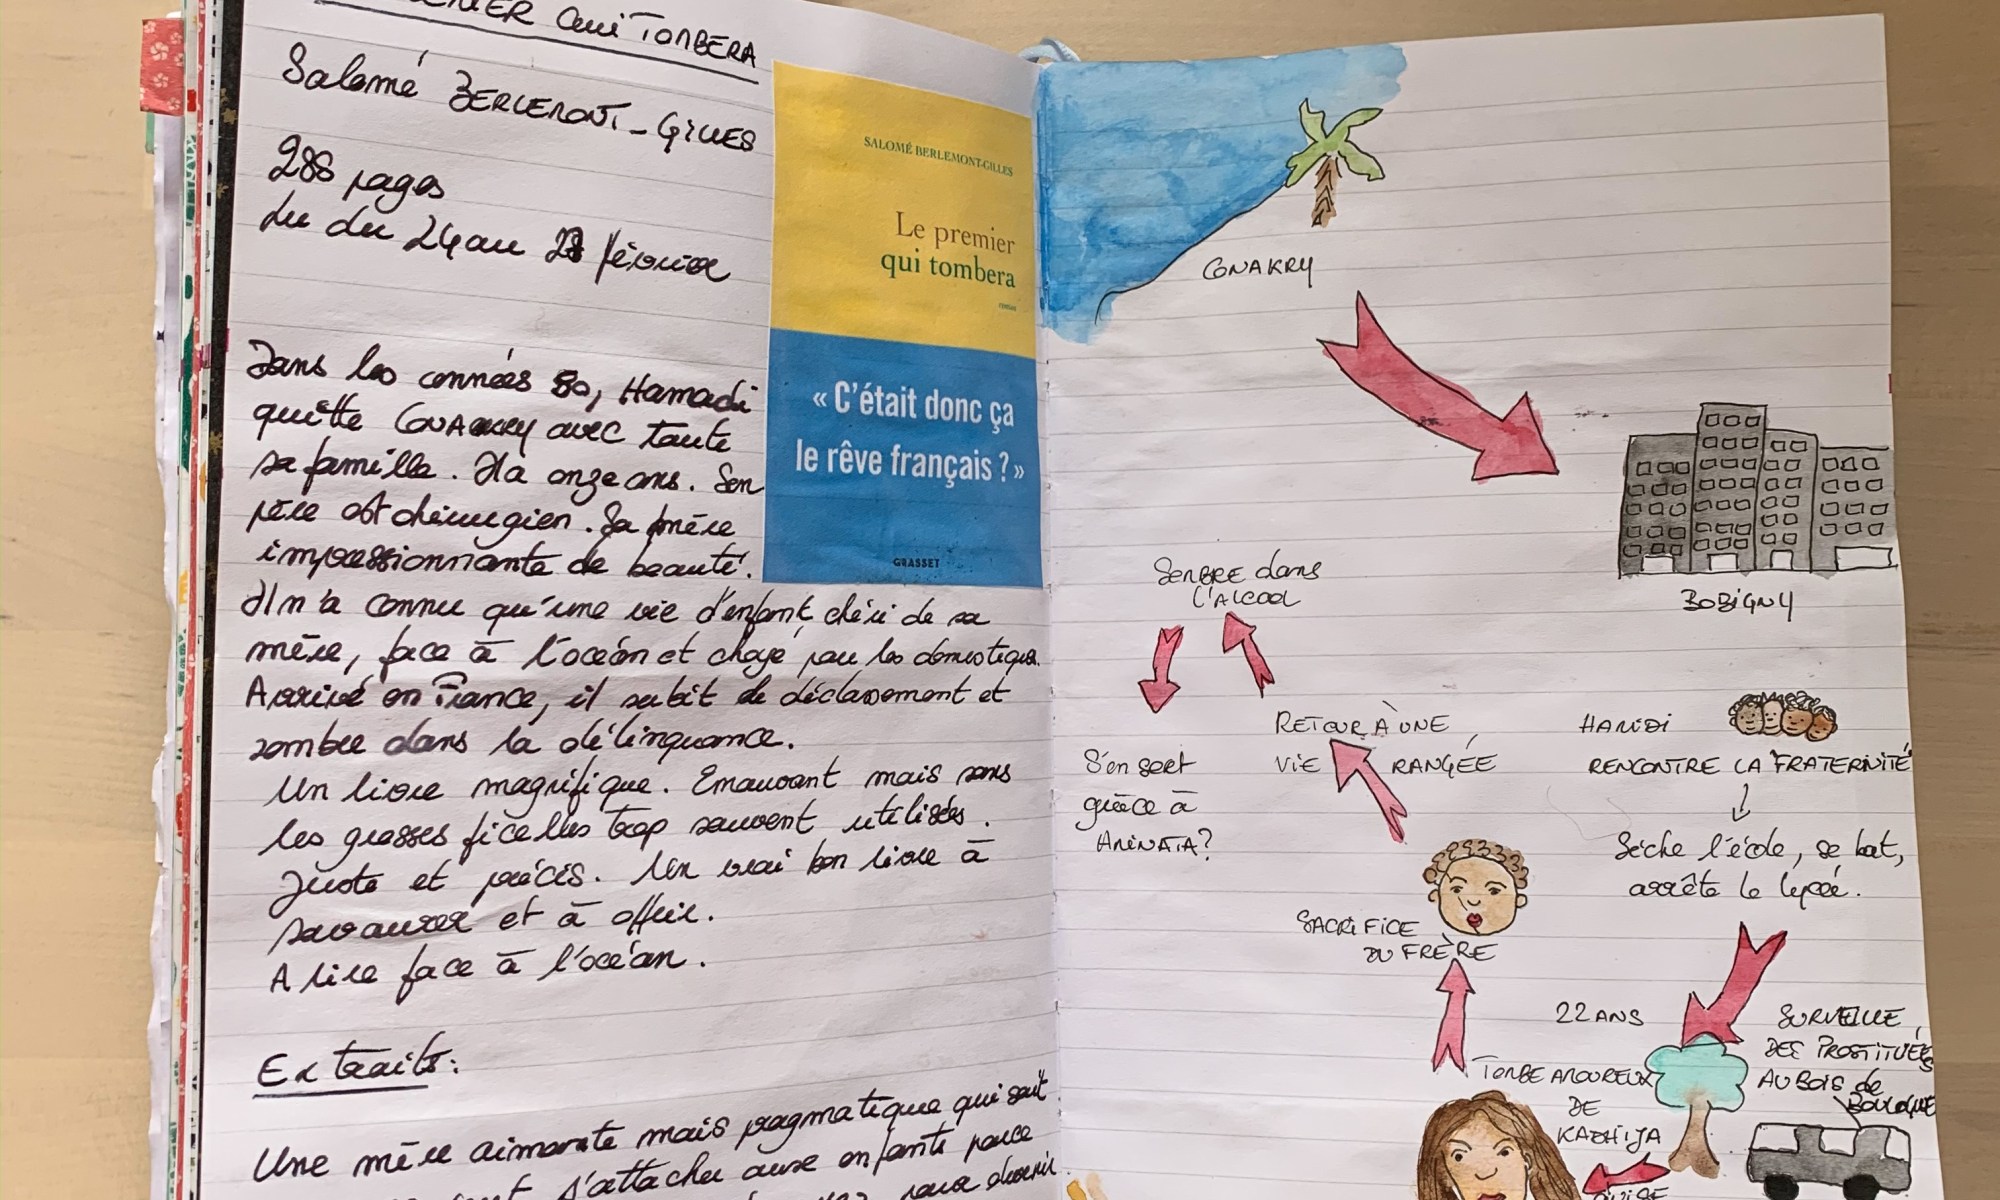 PREMIER QUI TOMBERA
Salomé BERLEMONT-GILLES
288 pages
Lu du 24 au 28 février
Dans les années 80, Hamadi
quitte CONAKRY avec toute
sa famille. Il a onze ans. Son
père est chirurgien. Sa mère
impressionnante de beauté.
Il n'a connu qu'une vie d'enfant, chéri de sa
mère, face à l'océan et choyé par les domestiques.
Arrivé en France, il subit le déclassement et
sombre dans la délinquance.
Un livre magnifique. Emouvant mais sans
les grosses ficelles trop souvent utilisées.
Juste et précis. Un vrai bon livre à
savourer et à offrir.
A lire face à l'océan.
Extraits:
Une mère aimante mais pragmatique qui sait
s'attacher aux enfants parce
pour devenir
SALOMÉ BERLEMONT-GILLES
Le premier
qui tombera
roman
« C'était donc ça
le rêve français ? »
GRASSET
CONAKRY
BOBIGNY
SOMBRE dans
L'ALCOOL
RETOUR À UNE
VIE RANGÉE
S'en sort
grâce à
AMINATA?
HAMIDI
RENCONTRE LA FRATERNITÉ
Sèche l'école, se bat,
arrête le lycée.
SACRIFICE
DU FRÈRE
22 ANS
SURVEILLE
DES PROSTITUÉES
AU BOIS de
BOULOGNE
TOMBE AMOUREUX
DE
KADHIJA